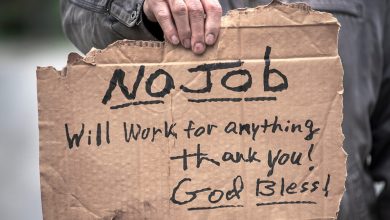 No Job
Will Work for anything
thank you!
God Bless!